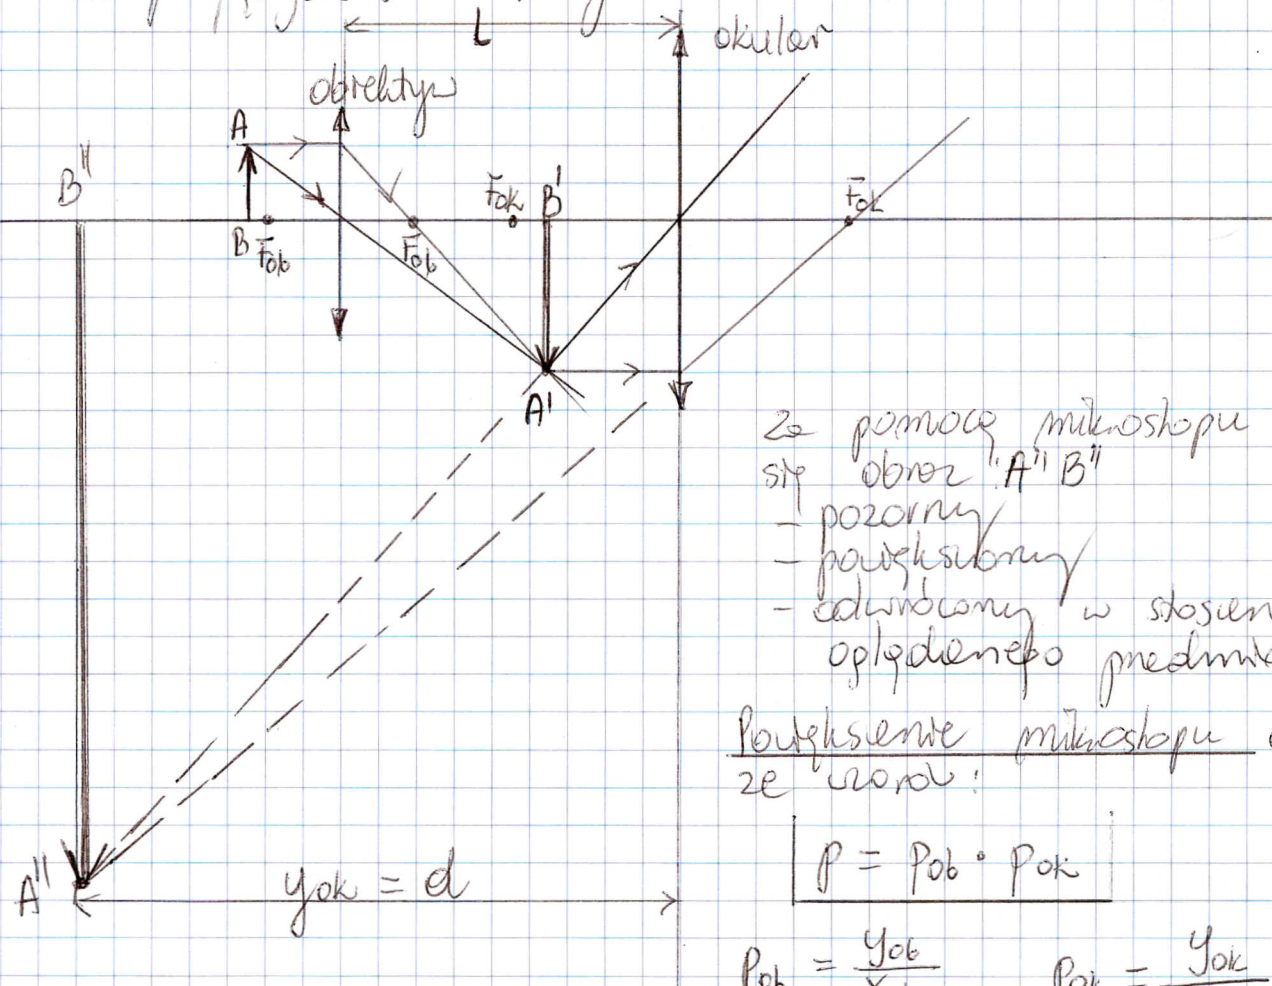 L
okular
obiektyw
A
B"
F̄ok
B'
F̄ok
B
F̄ob
F̄ob
A'
za pomocą mikroskopu
się obraz A"B"
- pozorny
- powiększony
- odwrócony w stosun
oglądanego przedmio
Powiększenie mikroskopu
ze wzoru:
p = pob · pok
A"
yok = d
pob = yob
pok = yok